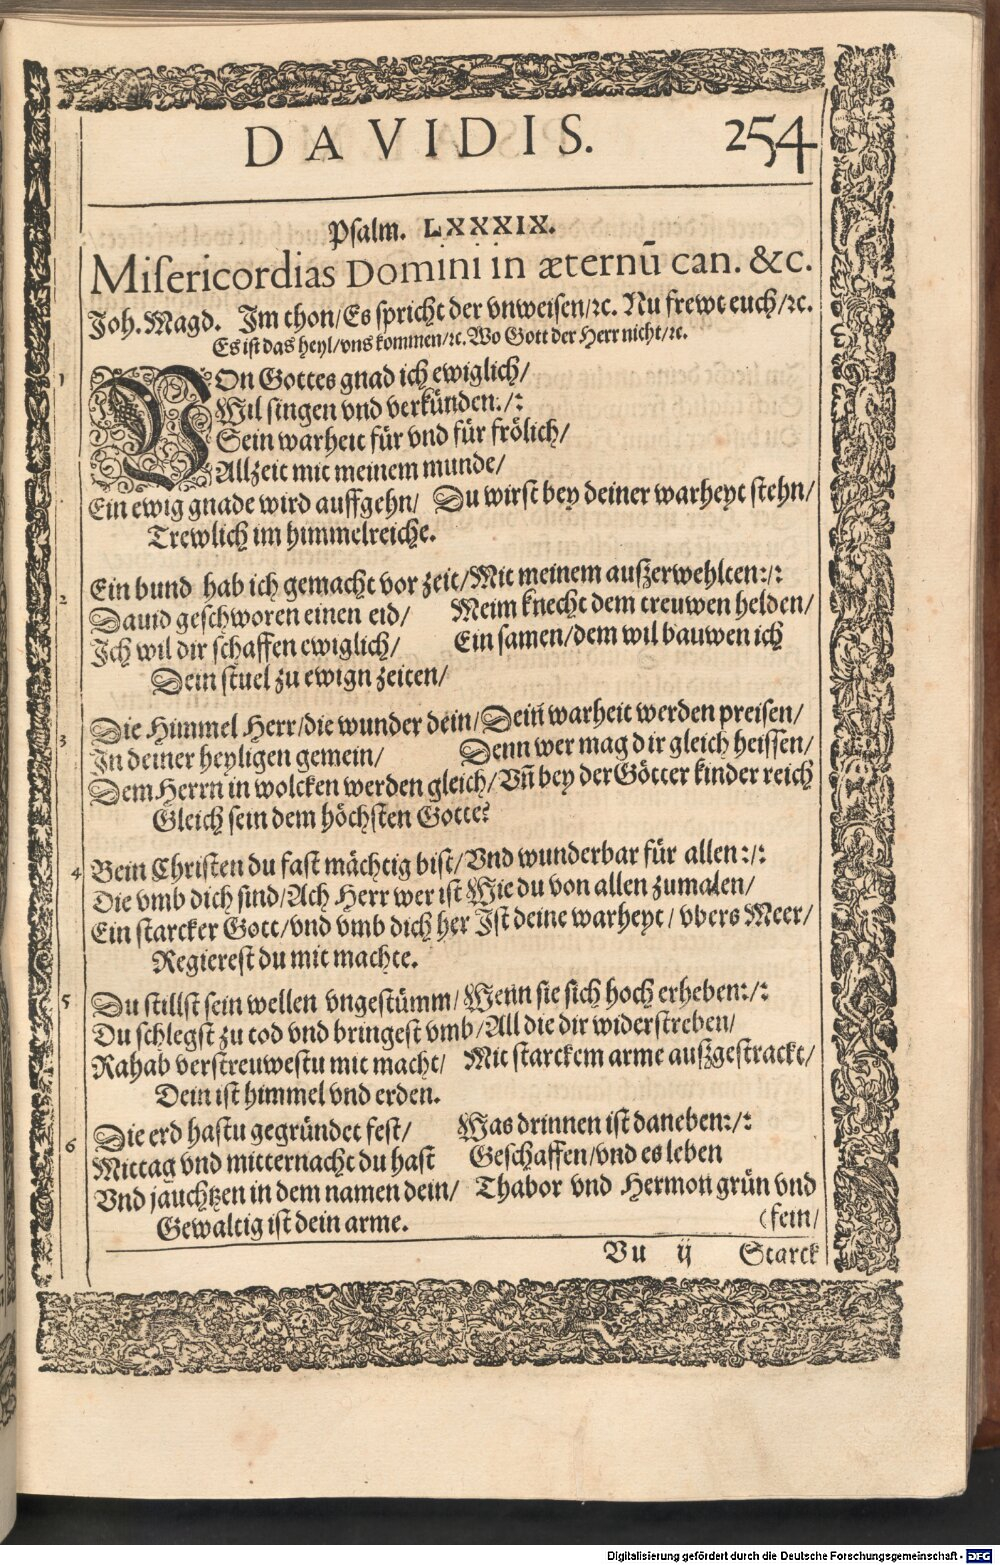 DAVIDIS. 254
Psalm. LXXXIX.
Misericordias Domini in æternū can. &c.
Joh. Magd. Im thon/Es spricht der vnweisen/ꝛc. Nu frewt euch/ꝛc.
Es ist das heyl/vns kommen/ꝛc. Wo Gott der Herr nicht/ꝛc.
1 VOn Gottes gnad ich ewiglich/
Wil singen vnd verkünden:/:
Sein warheit für vnd für frölich/
Allzeit mit meinem munde/
Ein ewig gnade wird auffgehn/ Du wirst bey deiner warheyt stehn/
Trewlich im himmelreiche.
2 Ein bund hab ich gemacht vor zeit/Mit meinem außerwehlten:/:
Dauid geschworen einen eid/ Meim knecht dem treuwen helden/
Ich wil dir schaffen ewiglich/ Ein samen/dem wil bauwen ich
Dein stuel zu ewign zeiten/
3 Die Himmel Herr/die wunder dein/Dein warheit werden preisen/
In deiner heyligen gemein/ Denn wer mag dir gleich heissen/
Dem Herrn in wolcken werden gleich/Vñ bey der Götter kinder reich
Gleich sein dem höchsten Gotte?
4 Bein Christen du fast mächtig bist/Vnd wunderbar für allen:/:
Die vmb dich sind/Ach Herr wer ist Wie du von allen zumalen/
Ein starcker Gott/vnd vmb dich her Ist deine warheyt/vbers Meer/
Regierest du mit machte.
5 Du stillst sein wellen vngestümm/Wenn sie sich hoch erheben:/:
Du schlegst zu tod vnd bringest vmb/All die dir widerstreben/
Rahab verstreuwestu mit macht/ Mit starckem arme außgestrackt/
Dein ist himmel vnd erden.
6 Die erd hastu gegründet fest/ Was drinnen ist daneben:/:
Mittag vnd mitternacht du hast Geschaffen/vnd es leben
Vnd jauchtzen in dem namen dein/ Thabor vnd Hermon grün vnd
Gewaltig ist dein arme. (fein/
Vu ij Starck
Digitalisierung gefördert durch die Deutsche Forschungsgemeinschaft - DFG